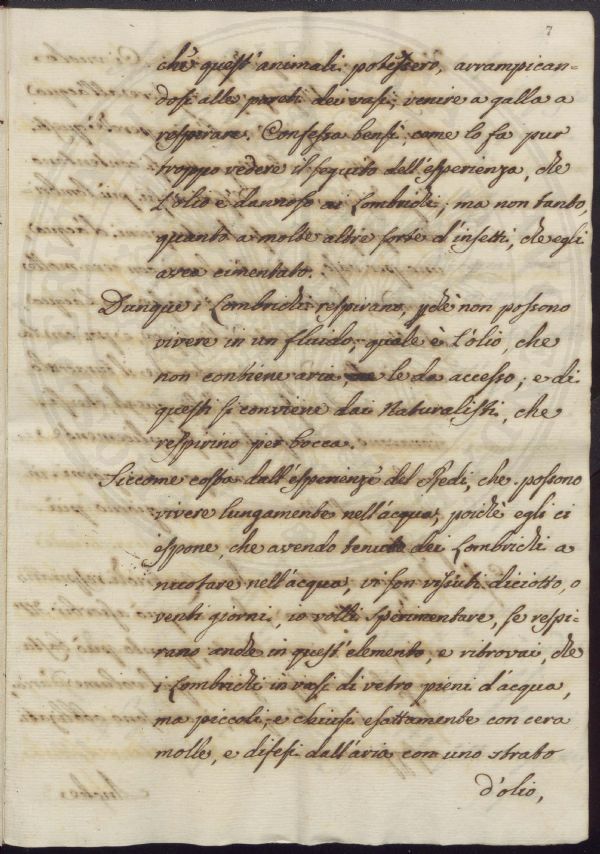 7
chè quest' animali potessero, arrampican-
dosi alle pareti dei vasi, venire a galla a
respirare. Confessa bensì, come lo fa pur
troppo vedere il seguito dell'esperienza, che
l'olio è dannoso ai Lombrichi; ma non tanto,
quanto a molte altre sorte d'insetti, che egli
avea cimentato.
Dunque i Lombrichi respirano, perchè non possono
vivere in un fluido, quale è l'olio, che
non contiene aria, le da accesso; e di
questi si conviene dai Naturalisti, che
respirino per bocca.
Siccome costa dall'esperienze del Redi, che possono
vivere lungamente nell'acqua, poichè egli ci
espone, che avendo tenuto dei Lombrichi a
nuotare nell'acqua, vi son vissuti diciotto, o
venti giorni, io volli sperimentare, se respi-
rano anche in quest'elemento, e ritrovai, che
i Lombrichi in vasi di vetro pieni d'acqua,
ma piccoli, e chiusi esattamente con cera
molle, e difesi dall'aria con uno strato
d'olio,